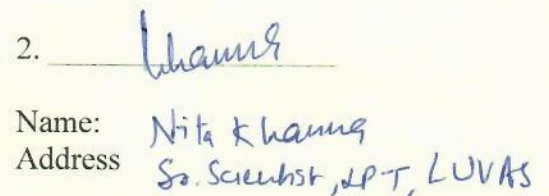 2. Khanna
Name: Nita Khanna
Address Sr. Scientist, LPT, LUVAS